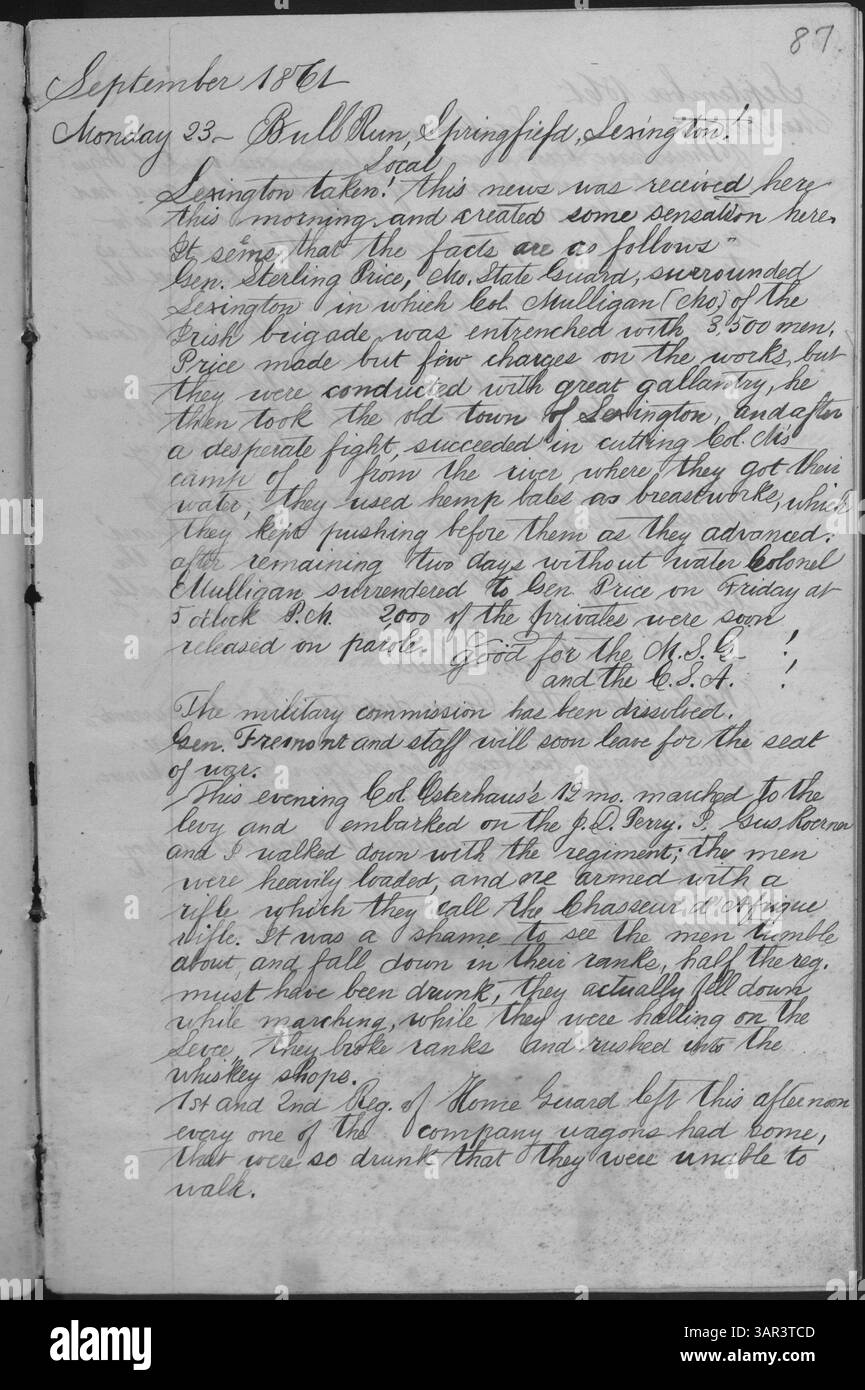 87
September 1861
Monday 23 - Bull Run, Springfield, Lexington!
Local
Lexington taken! this news was received here
this morning and created some sensation here.
It seems that the facts are as follows"
Gen. Sterling Price, Mo. State Guard, surrounded
Lexington in which Col. Mulligan (Mo.) of the
Irish brigade was entrenched with 3,500 men.
Price made but few charges on the works, but
they were conducted with great gallantry, he
then took the old town of Lexington, and after
a desperate fight, succeeded in cutting Col. M's
camp of from the river where they got their
water; they used hemp bales as breastworks, which
they kept pushing before them as they advanced.
after remaining two days without water Colonel
Mulligan surrendered to Gen Price on Friday at
5 o'clock P.M. 2,000 of the privates were soon
released on parole. Good for the M.S.G. !
and the C.S.A. !
The military commission has been dissolved.
Gen. Fremont and staff will soon leave for the seat
of war.
This evening Col Osterhaus's 12 mo. marched to the
levy and embarked on the J.D. Perry. P. Gus Koerner
and I walked down with the regiment; the men
were heavily loaded, and are armed with a
rifle which they call the Chasseur d'Afrique
rifle. It was a shame to see the men tumble
about, and fall down in their ranks, half the reg.
must have been drunk, they actually fell down
while marching, while they were halting on the
levee they broke ranks and rushed into the
whiskey shops.
1st and 2nd Reg. of Home Guard left this afternoon
every one of the company wagons had some,
that were so drunk that they were unable to
walk.
alamy
Image ID: 2AR3TCD
www.alamy.com